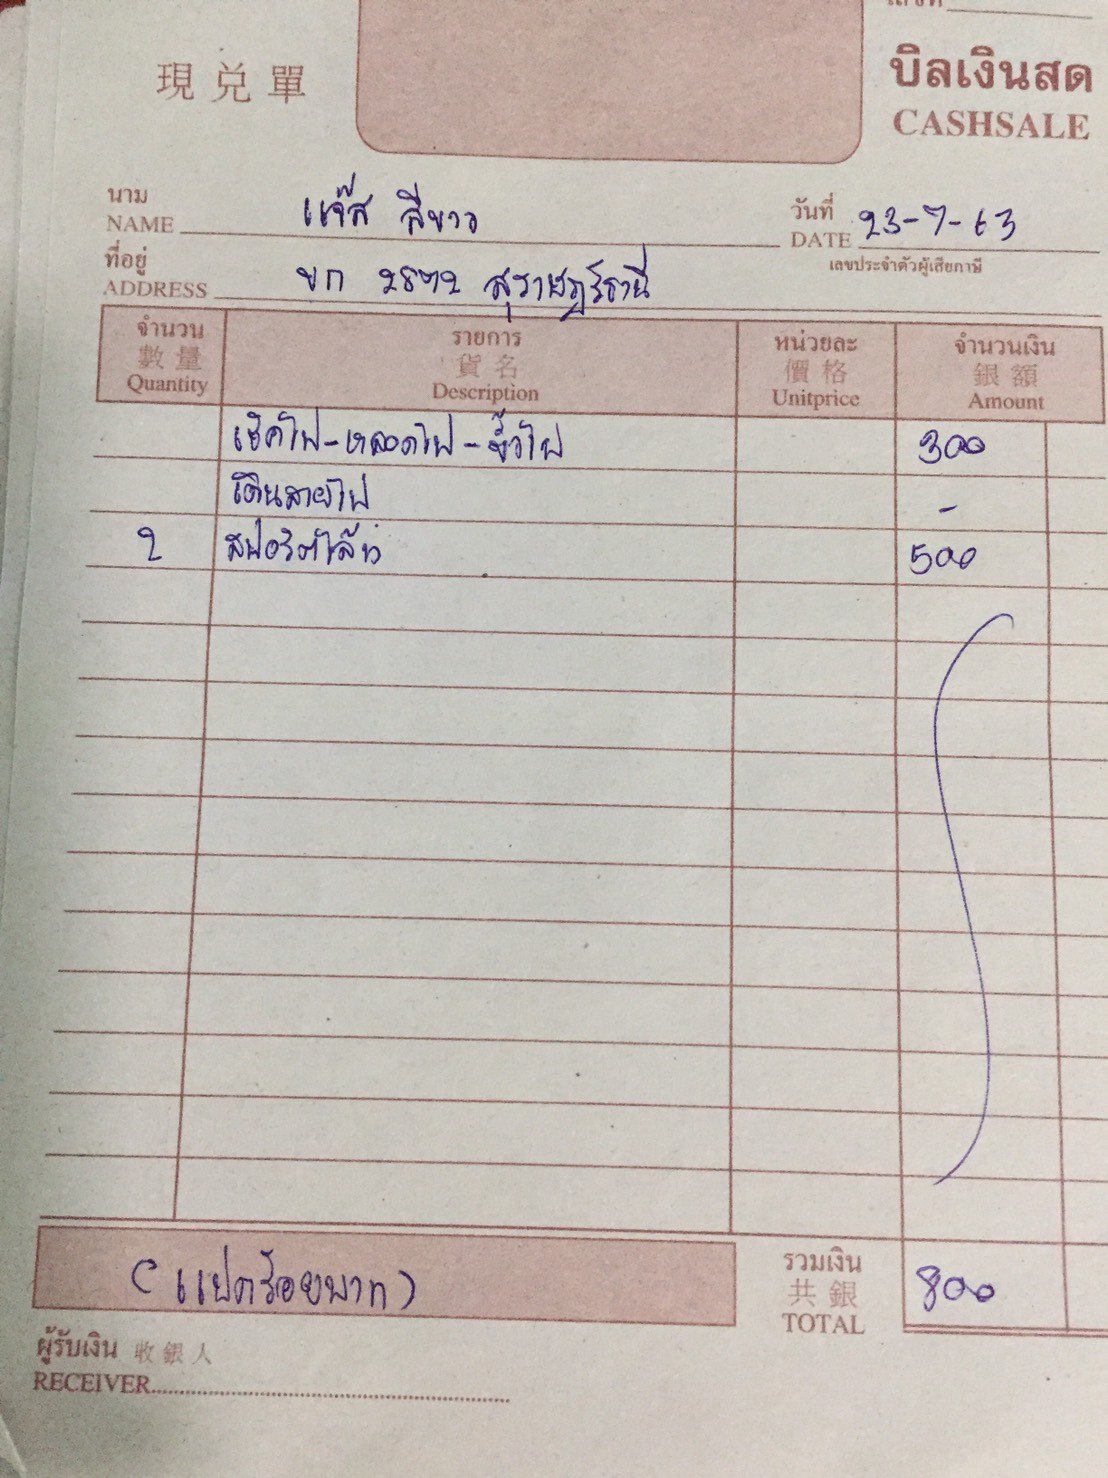 เลขที่
現兑單
บิลเงินสด
CASHSALE
นาม
NAME แจ๊ส สีขาว
วันที่
DATE 23-7-63
ที่อยู่
ADDRESS บก 2872 สุราษฎร์ธานี
เลขประจำตัวผู้เสียภาษี
จำนวน รายการ หน่วยละ จำนวนเงิน
數量 貨名 價格 銀額
Quantity Description Unitprice Amount
เช็คไฟ-หลอดไฟ-ขั้วไฟ 300
เดินสายไฟ -
2 สปอร์ตไล้ท์ 500
(แปดร้อยบาท)
รวมเงิน
共銀
TOTAL 800
ผู้รับเงิน 收銀人
RECEIVER